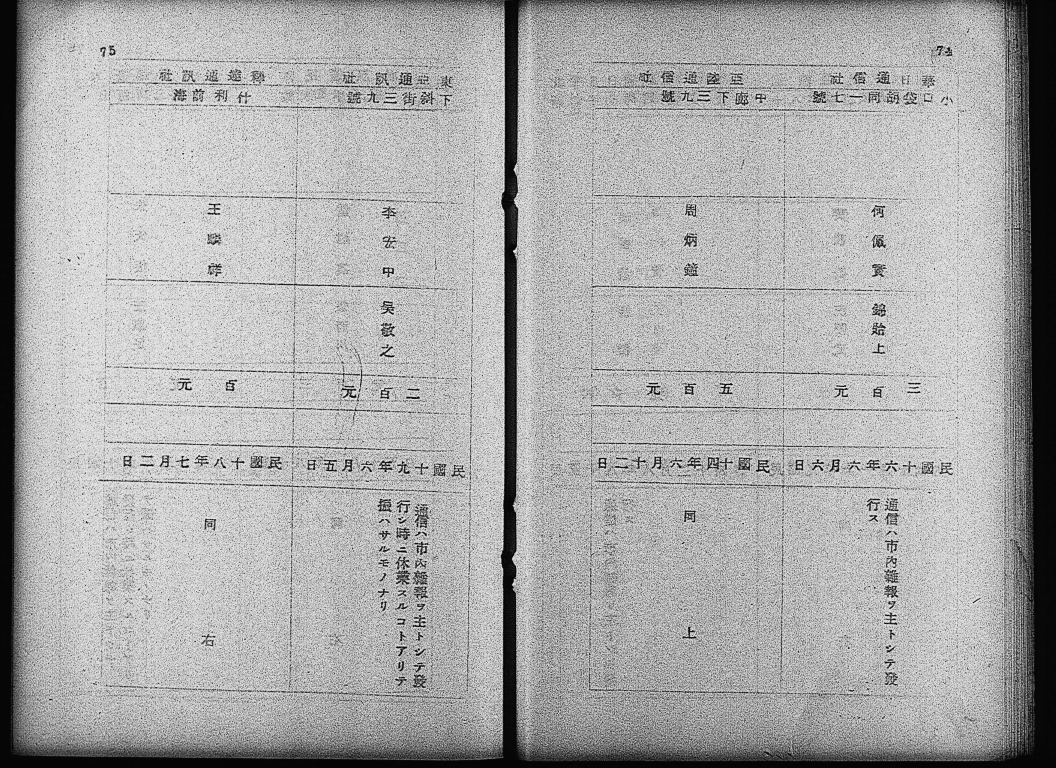 74
華日通信社
小口袋胡同一七號
何佩賢
錦貽上
三百元
民國十六年六月六日
通信ハ市內雜報ヲ主トシテ發
行ス
亞陸通信社
中廊下三九號
周炳鐘
五百元
民國十四年六月十二日
同上
75
東亞通訊社
下斜街三九號
李宏中
吳敬之
二百元
民國十九年六月五日
通信ハ市內雜報ヲ主トシテ發
行シ時ニ休業スルコトアリテ
振ハサルモノナリ
遠通訊社
什利前海
王麟祥
百元
民國十八年七月二日
同右